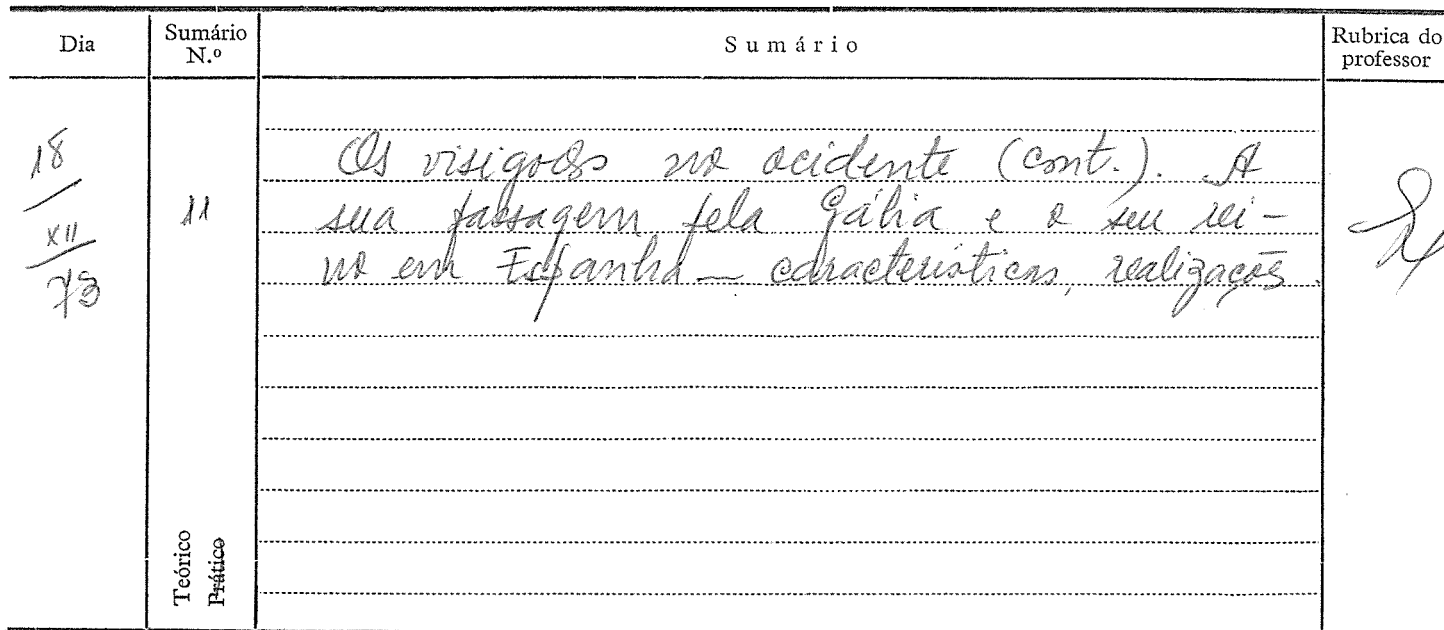 Dia
Sumário
N.º
Sumário
Rubrica do
professor
18
/
XII
73
11
Os visigodos no ocidente (cont.). A
sua passagem pela Gália e o seu rei-
no em Espanha — características, realizações.
Teórico
Prático